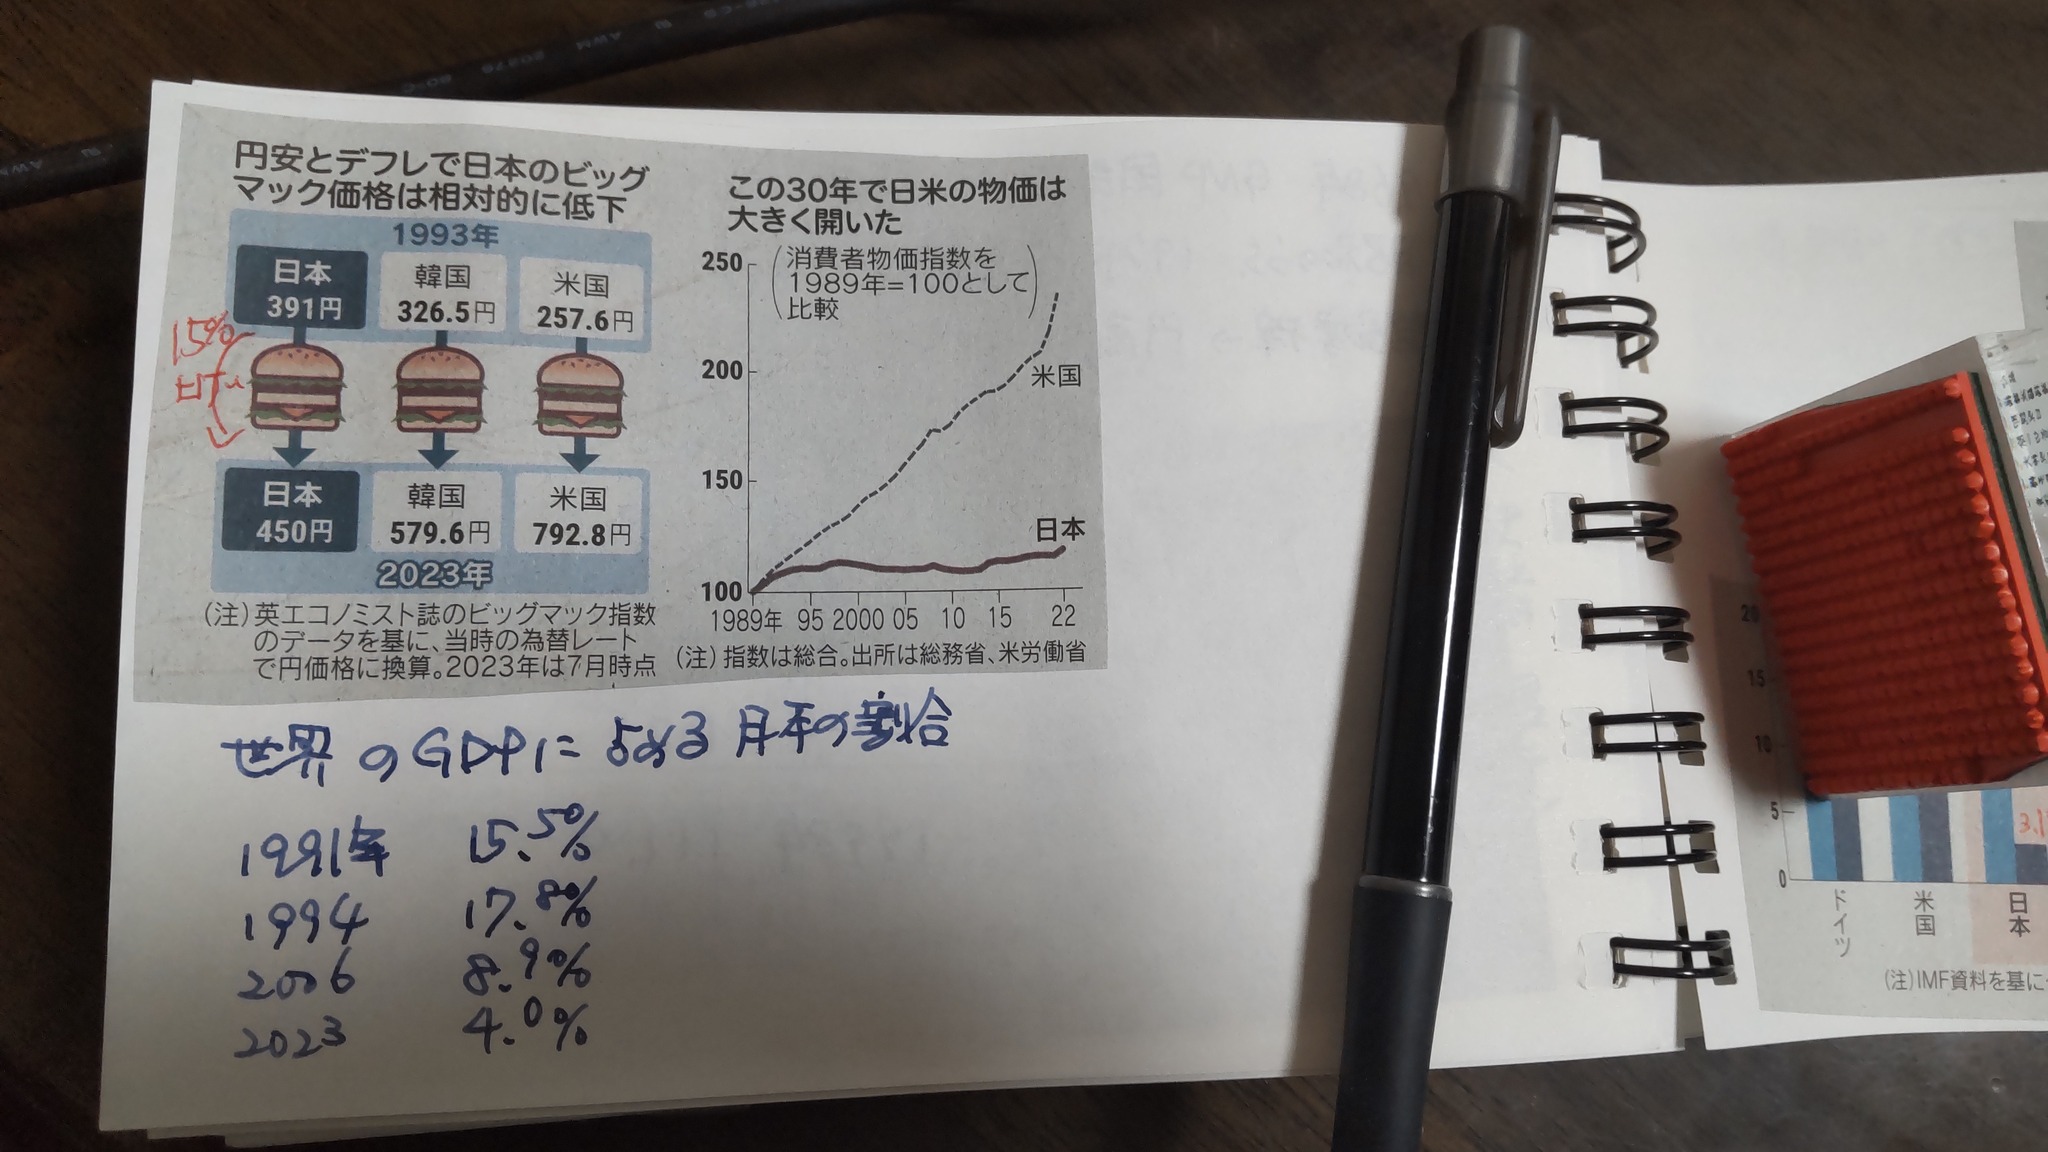 円安とデフレで日本のビッグ
マック価格は相対的に低下
1993年
日本
391円
韓国
326.5円
米国
257.6円
15%
日本
450円
韓国
579.6円
米国
792.8円
2023年
(注)英エコノミスト誌のビッグマック指数
のデータを基に、当時の為替レート
で円価格に換算。2023年は7月時点
この30年で日米の物価は
大きく開いた
(消費者物価指数を
1989年=100として
比較)
250
200
150
100
米国
日本
1989年 95 2000 05 10 15 22
(注)指数は総合。出所は総務省、米労働省
世界のGDPに占める日本の割合
1991年 15.5%
1994 17.8%
2006 8.9%
2023 4.0%
20
15
10
5
0
3.1
ドイツ
米国
日本
(注)IMF資料を基に